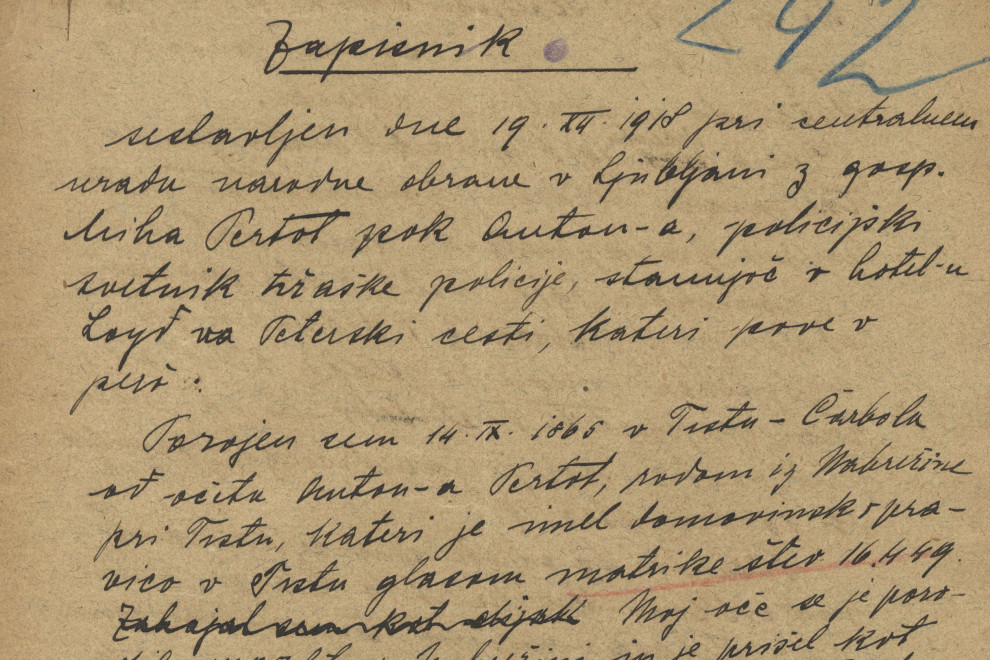 Zapisnik
242
sestavljen dne 19. XII. 1918 pri centralnem
uradu narodne obrane v Ljubljani z gosp.
Miha Pertot pok Anton-a, policijski
svetnik tržaške policije, stanujoč v hotel-u
Loyd na Peterski cesti, kateri pove v
pero:
Porojen sem 14. IX. 1865 v Trstu - Čarbola
od očeta Anton-a Pertot, rodom iz Nabrežine
pri Trstu, kateri je imel domovinsko pra-
vico v Trstu glasom matrike štev 16.449.
Zahajal sem kot dijak Moj oče se je poro-
in je prišel kot